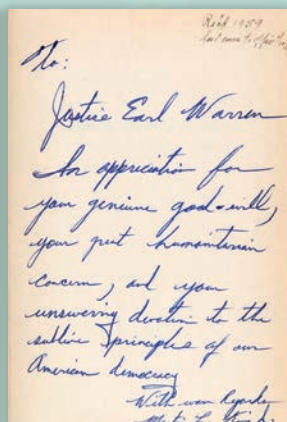 Rec'd 1959
To:
Justice Earl Warren
In appreciation for
your genuine good-will,
your great humanitarian
concern, and your
unswerving devotion to the
sublime principles of our
American democracy
With warm Regards
Martin L. King Jr.